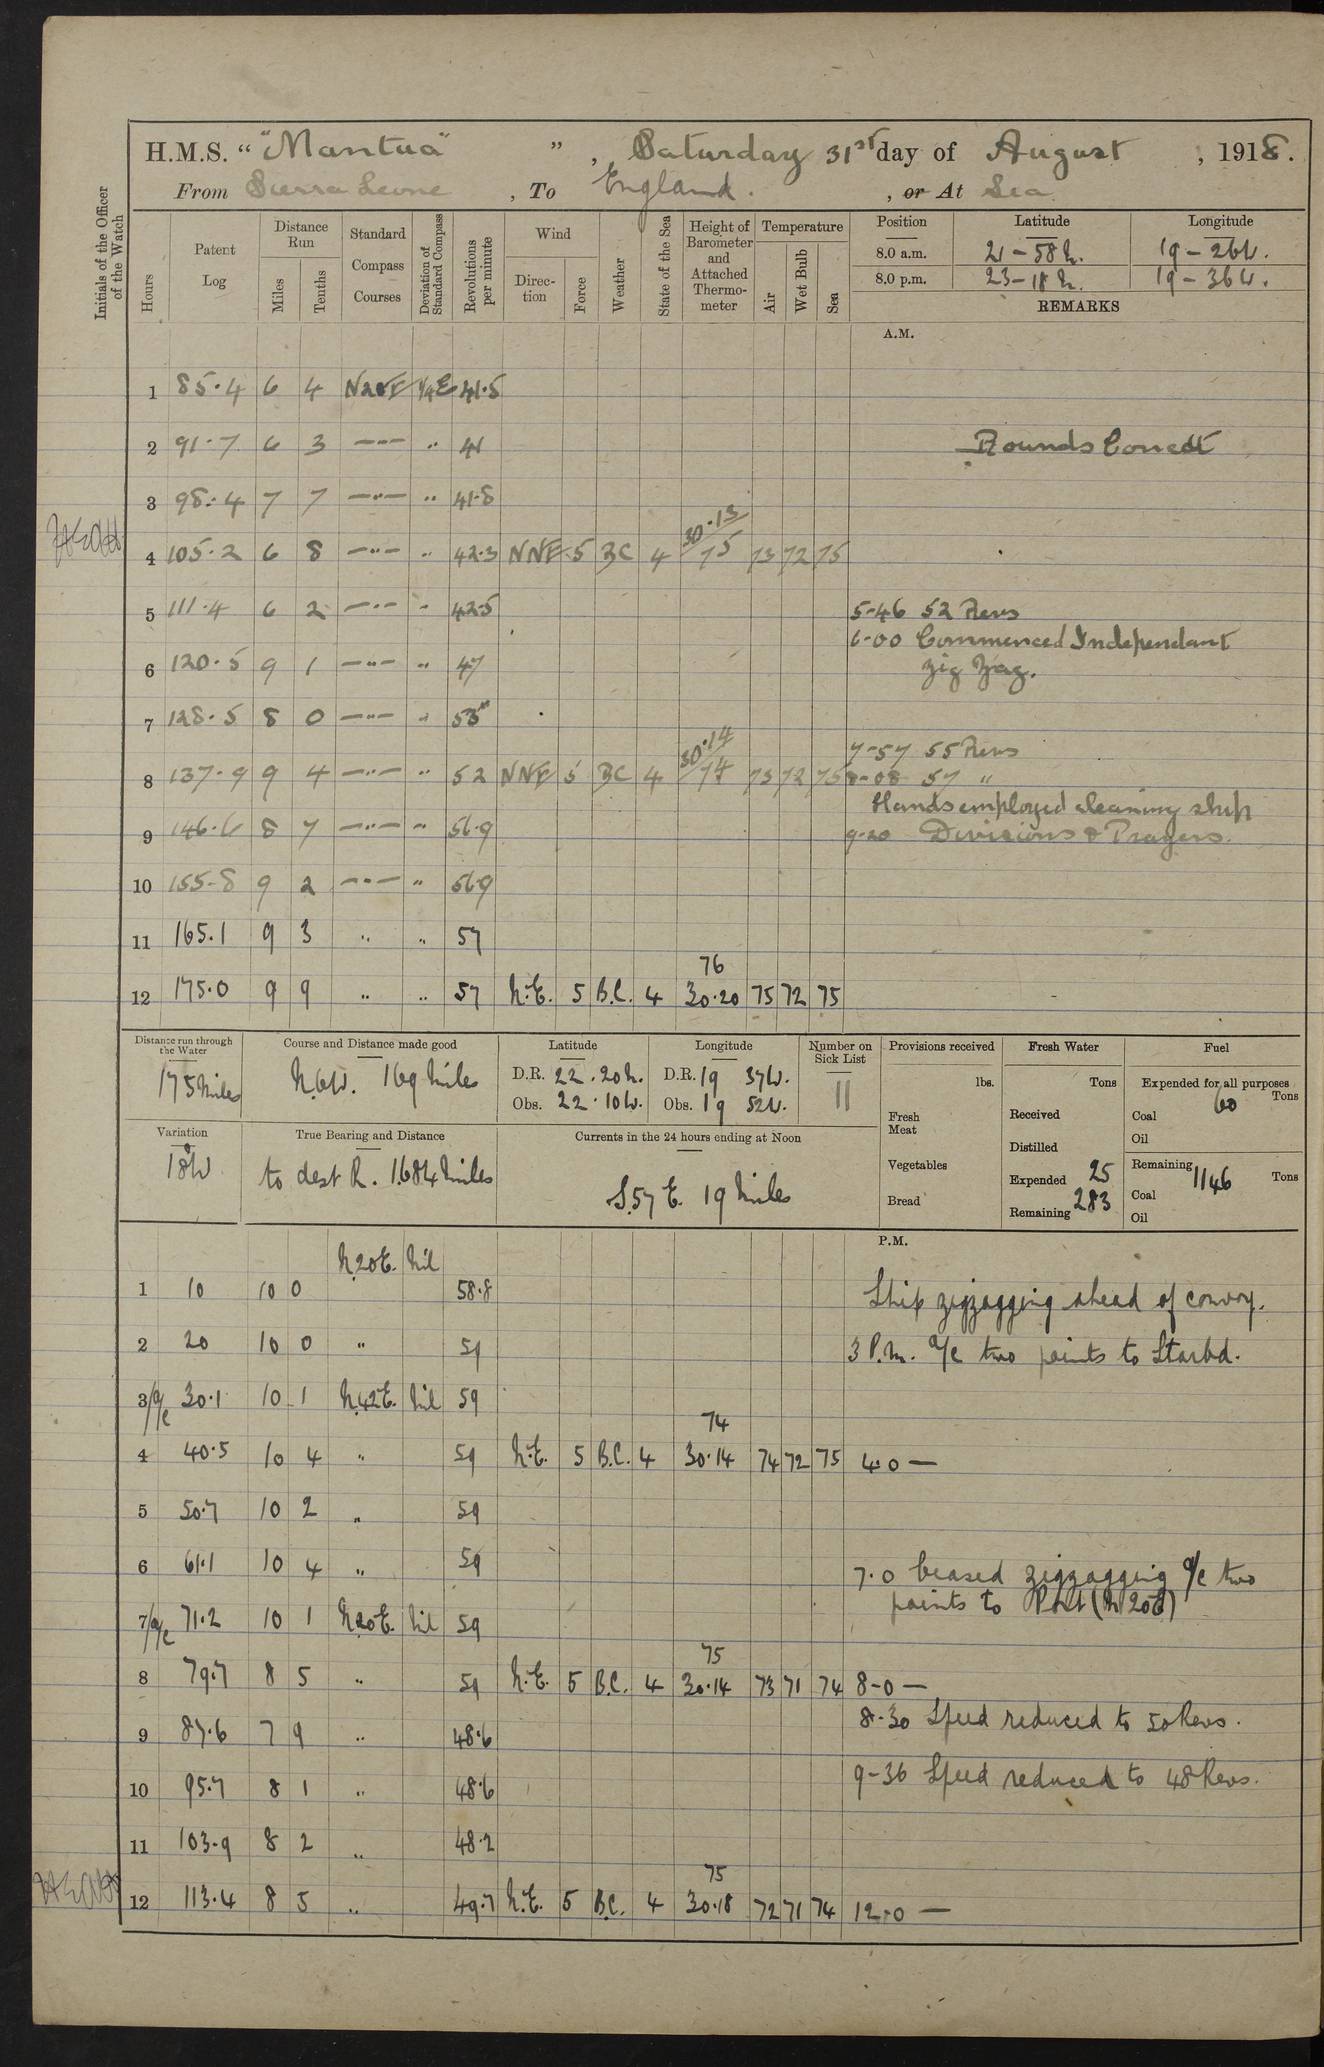 H.M.S. " "Mantua" " , Saturday 31st day of August , 1918.
From Sierra Leone , To England. , or At Sea
Initials of the Officer of the Watch
Hours
Patent Log
Distance Run
Miles
Tenths
Standard Compass Courses
Deviation of Standard Compass
Revolutions per minute
Wind
Direction
Force
Weather
State of the Sea
Height of Barometer and Attached Thermometer
Temperature
Air
Wet Bulb
Sea
Position Latitude Longitude
8.0 a.m. 21-58N. 19-26W.
8.0 p.m. 23-18N. 19-36W.
REMARKS
A.M.
1 85.4 6 4 N20E 1/4E 41.5
2 91.7 6 3 —"— " 41 Rounds Correct
3 98.4 7 7 —"— " 41.8
4 105.2 6 8 —"— " 42.3 NNE 5 BC 4 30.13/75 73 72 75
5 111.4 6 2 —"— " 42.5 5-46 52 Revs
6-00 Commenced Independant
6 120.5 9 1 —"— " 47 Zig Zag.
7 128.5 8 0 —"— " 53
7-57 55 Revs
8 137.9 9 4 —"— " 52 NNE 5 BC 4 30.14/74 73 72 75 8-08 57 "
Hands employed cleaning ship
9 146.6 8 7 —"— " 56.9 9-20 Divisions & Prayers.
10 155.8 9 2 —"— " 56.9
11 165.1 9 3 " " 57
76
12 175.0 9 9 " " 57 N.E. 5 B.C. 4 30.20 75 72 75
Distance run through the Water
175 Miles
Course and Distance made good
N.6W. 169 Miles
Latitude
D.R. 22.20N.
Obs. 22.10W.
Longitude
D.R. 19 37W.
Obs. 19 52W.
Number on Sick List
11
Provisions received
lbs.
Fresh Meat
Vegetables
Bread
Fresh Water
Tons
Received
Distilled
Expended 25
Remaining 283
Fuel
Expended for all purposes
60 Tons
Coal
Oil
Remaining 1146 Tons
Coal
Oil
Variation
18W
True Bearing and Distance
to dest R. 1684 Miles
Currents in the 24 hours ending at Noon
S.57 E. 19 Miles
P.M.
N.20E. Nil
1 10 10 0 58.8 Ship zigzagging ahead of convoy.
2 20 10 0 " 59 3 P.M. a/c two points to Starbd.
3 a/c 30.1 10 1 N.42E. Nil 59
74
4 40.5 10 4 " 59 N.E. 5 B.C. 4 30.14 74 72 75 4.0 —
5 50.7 10 2 " 59
6 61.1 10 4 " 59 7.0 Ceased zigzagging a/c two
points to Port (N20E)
7 a/c 71.2 10 1 N.20E. Nil 59
75
8 79.7 8 5 " 59 N.E. 5 B.C. 4 30.14 73 71 74 8-0 —
8-30 Speed reduced to 50 Revs.
9 87.6 7 9 " 48.6
10 95.7 8 1 " 48.6 9-36 Speed reduced to 48 Revs.
11 103.9 8 2 " 48.2
75
12 113.4 8 5 " 49.7 N.E. 5 B.C. 4 30.18 72 71 74 12.0 —